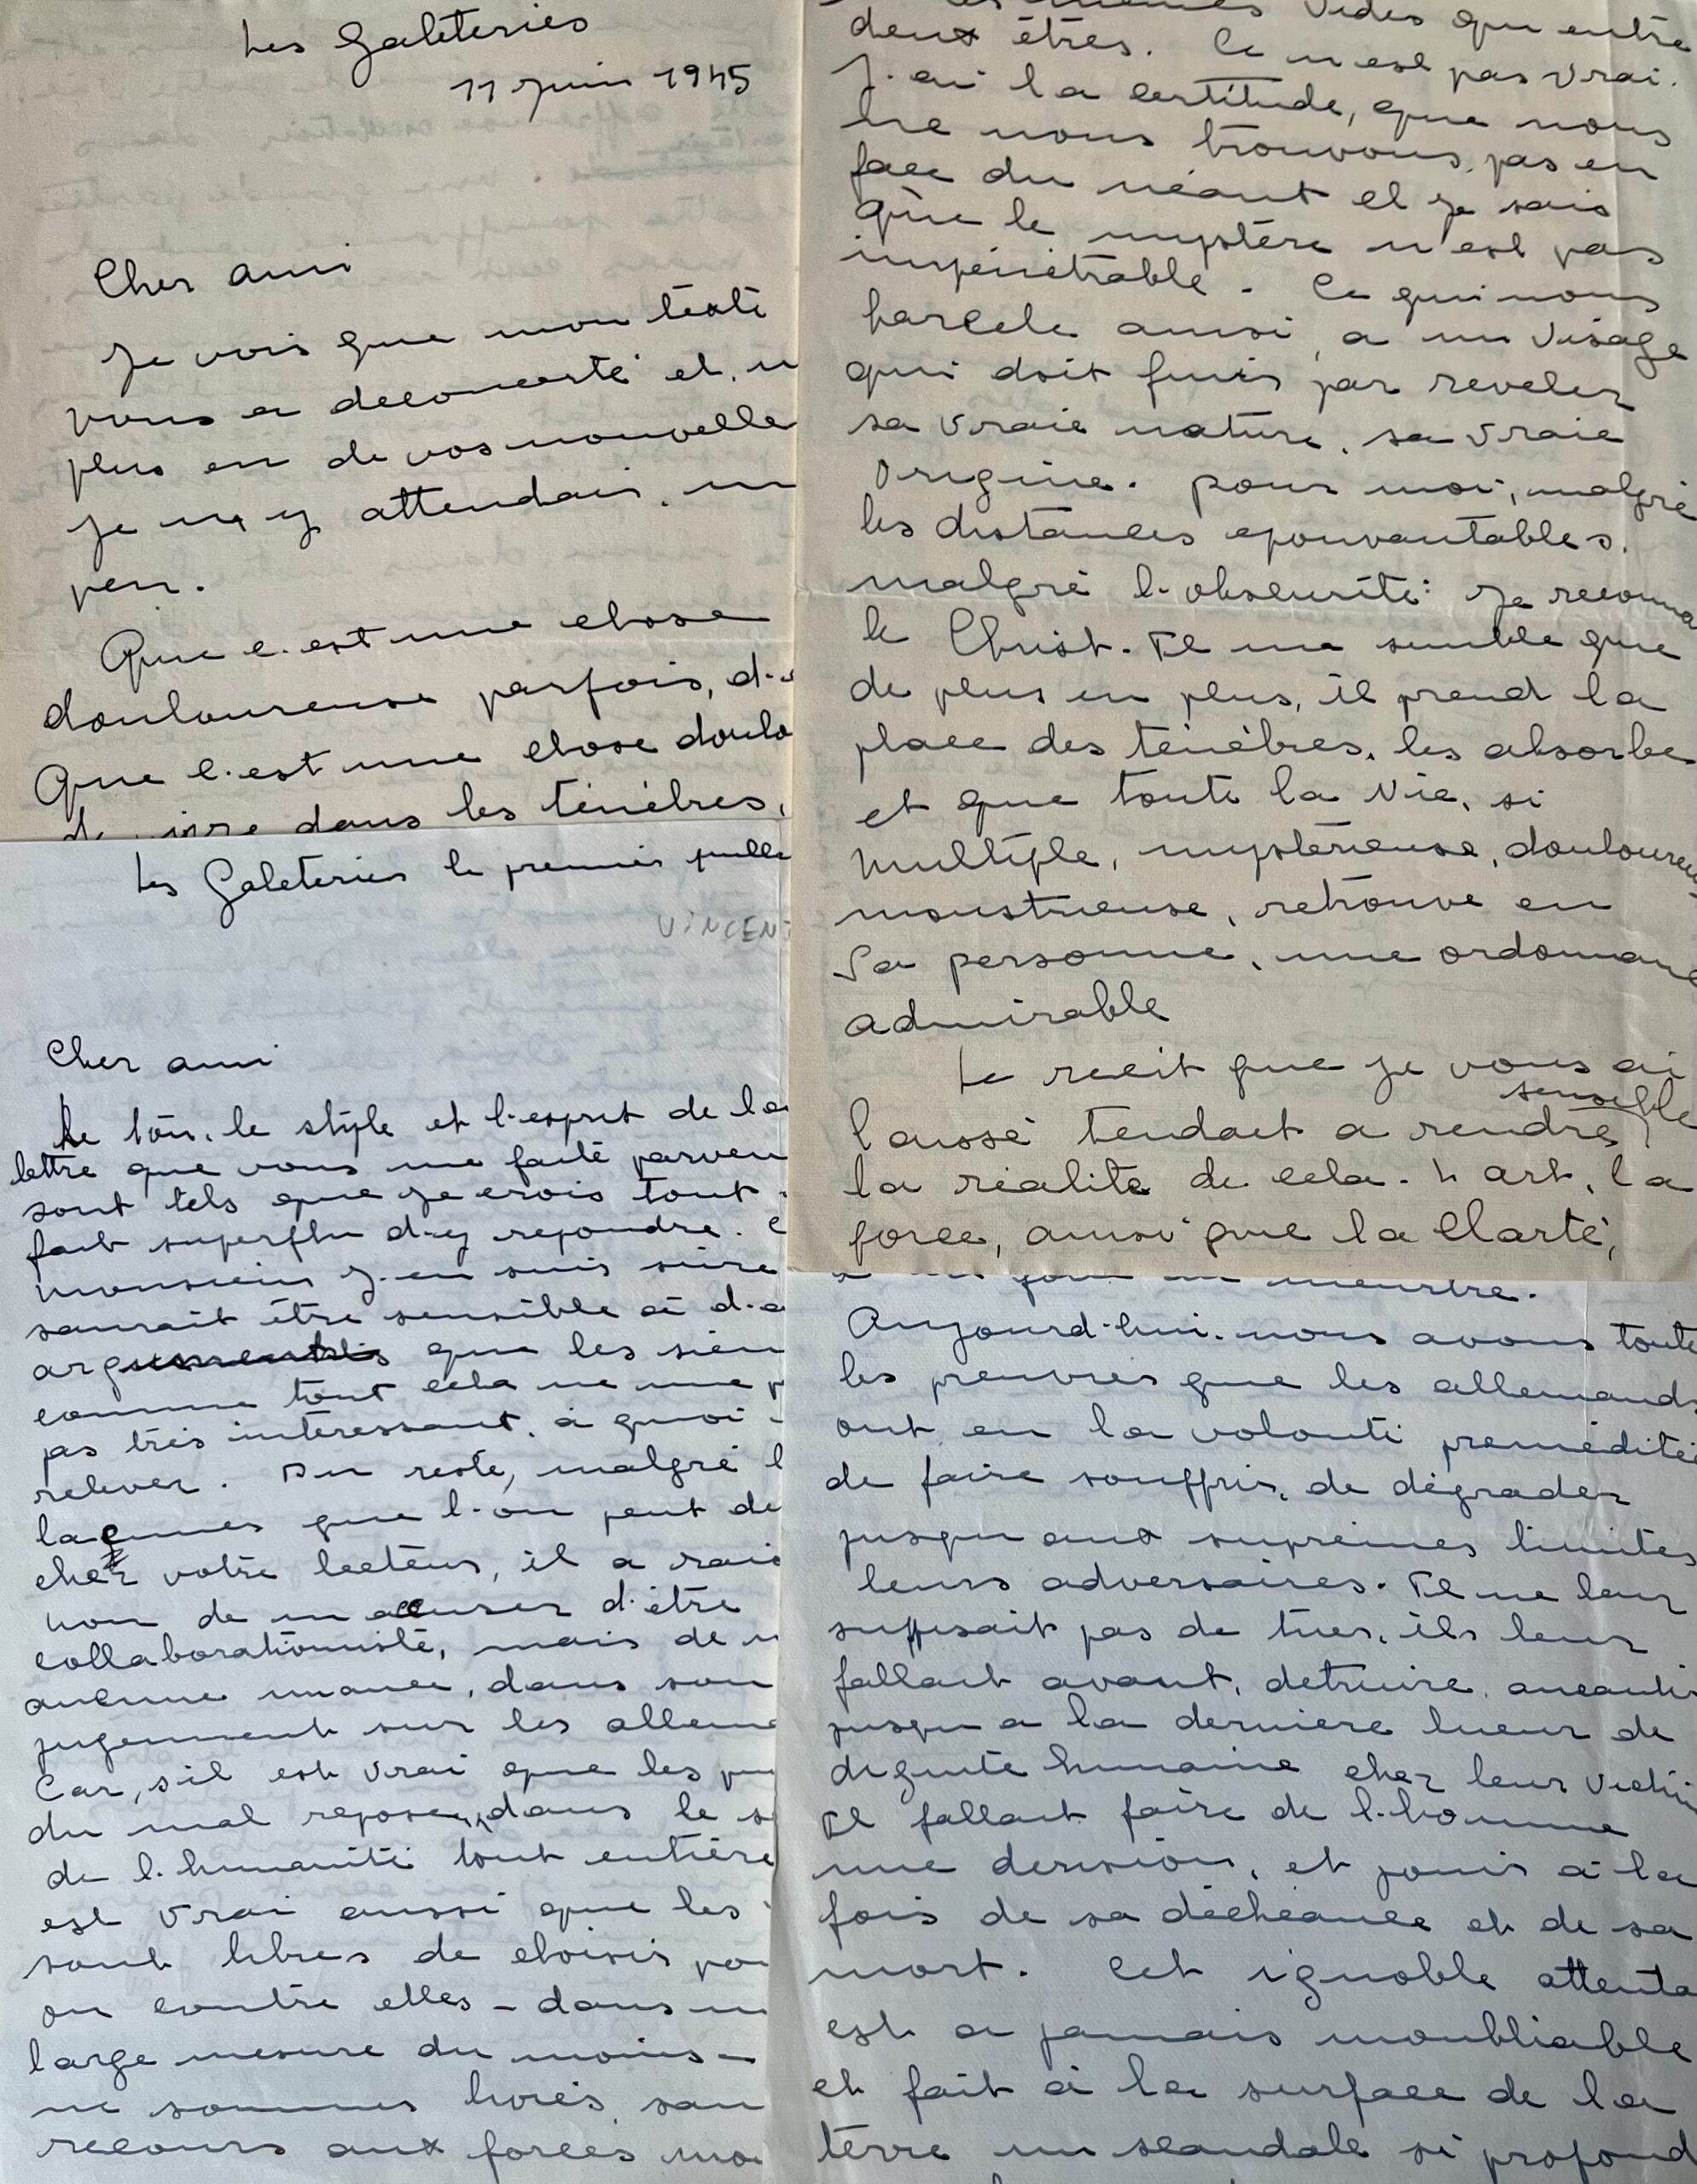 Les Galeteries
11 juin 1945
Cher ami
Je vois que mon texte
vous a deconcerté et. n
plus eu de vos nouvelle
Je m'y attendais. un
peu.
Que c'est une chose
douloureuse parfois, d'
Que c'est une chose doulo
dans les ténèbres,
Les Galeteries le premier juille
VINCENT
Cher ami
Le ton, le style et l'esprit de la
lettre que vous me faite parven
sont tels que je crois tout
fait superflu d'y repondre. C
monsieur j'en suis sûre
saurait être sensible à d'a
arguments que les sien
comme tout cela ne me p
pas très intéressant, à quoi
relever. Du reste, malgré l
lacunes que l'on peut de
chez votre lecteur, il a rais
non de m'accuser d'être
collaborationniste, mais de n
aucune nuance, dans son
jugement sur les allema
Car, s'il est vrai que les pu
du mal repose dans le s
de l'humanité tout entière
est vrai aussi que les
sont libres de choisir po
ou contre elles - dans u
large mesure du moins -
ne sommes livrés, san
recours aux forces mo
vides que entre
deux êtres. Ce n'est pas vrai.
J'ai la certitude, que nous
ne nous trouvons pas en
face du néant et je sais
que le mystère n'est pas
impénétrable. Ce qui nous
harcele ainsi, a un visage
qui doit finir par reveler
sa vraie nature, sa vraie
Origine. pour moi, malgré
les distances epouvantables.
malgré l'obscurité: je reconna
le Christ. Il me semble que
de plus en plus, il prend la
place des ténèbres, les absorbe
et que toute la Vie, si
multiple, mystérieuse, douloureu
monstrueuse, retrouve en
Sa personne, une ordonnanc
admirable
Le recit que je vous ai
laissé tendait a rendre sensible
la réalité de cela. L'art, la
force, ainsi que la Clarté,
meurtre.
Aujourd'hui. nous avons toute
les preuves que les allemands
ont eu la volonté preméditée
de faire souffrir, de dégrader
jusqu'aux suprèmes limites
leurs adversaires. Il ne leur
suffisait pas de tuer, ils leur
fallait avant, detruire, aneantir
jusqu'a la derniere lueur de
dignité humaine chez leur victim
Il fallait faire de l'homme
une derision, et jouir à la
fois de sa déchéance et de sa
mort. Cet ignoble attenta
est a jamais inoubliable
et fait à la surface de la
terre un scandale si profond